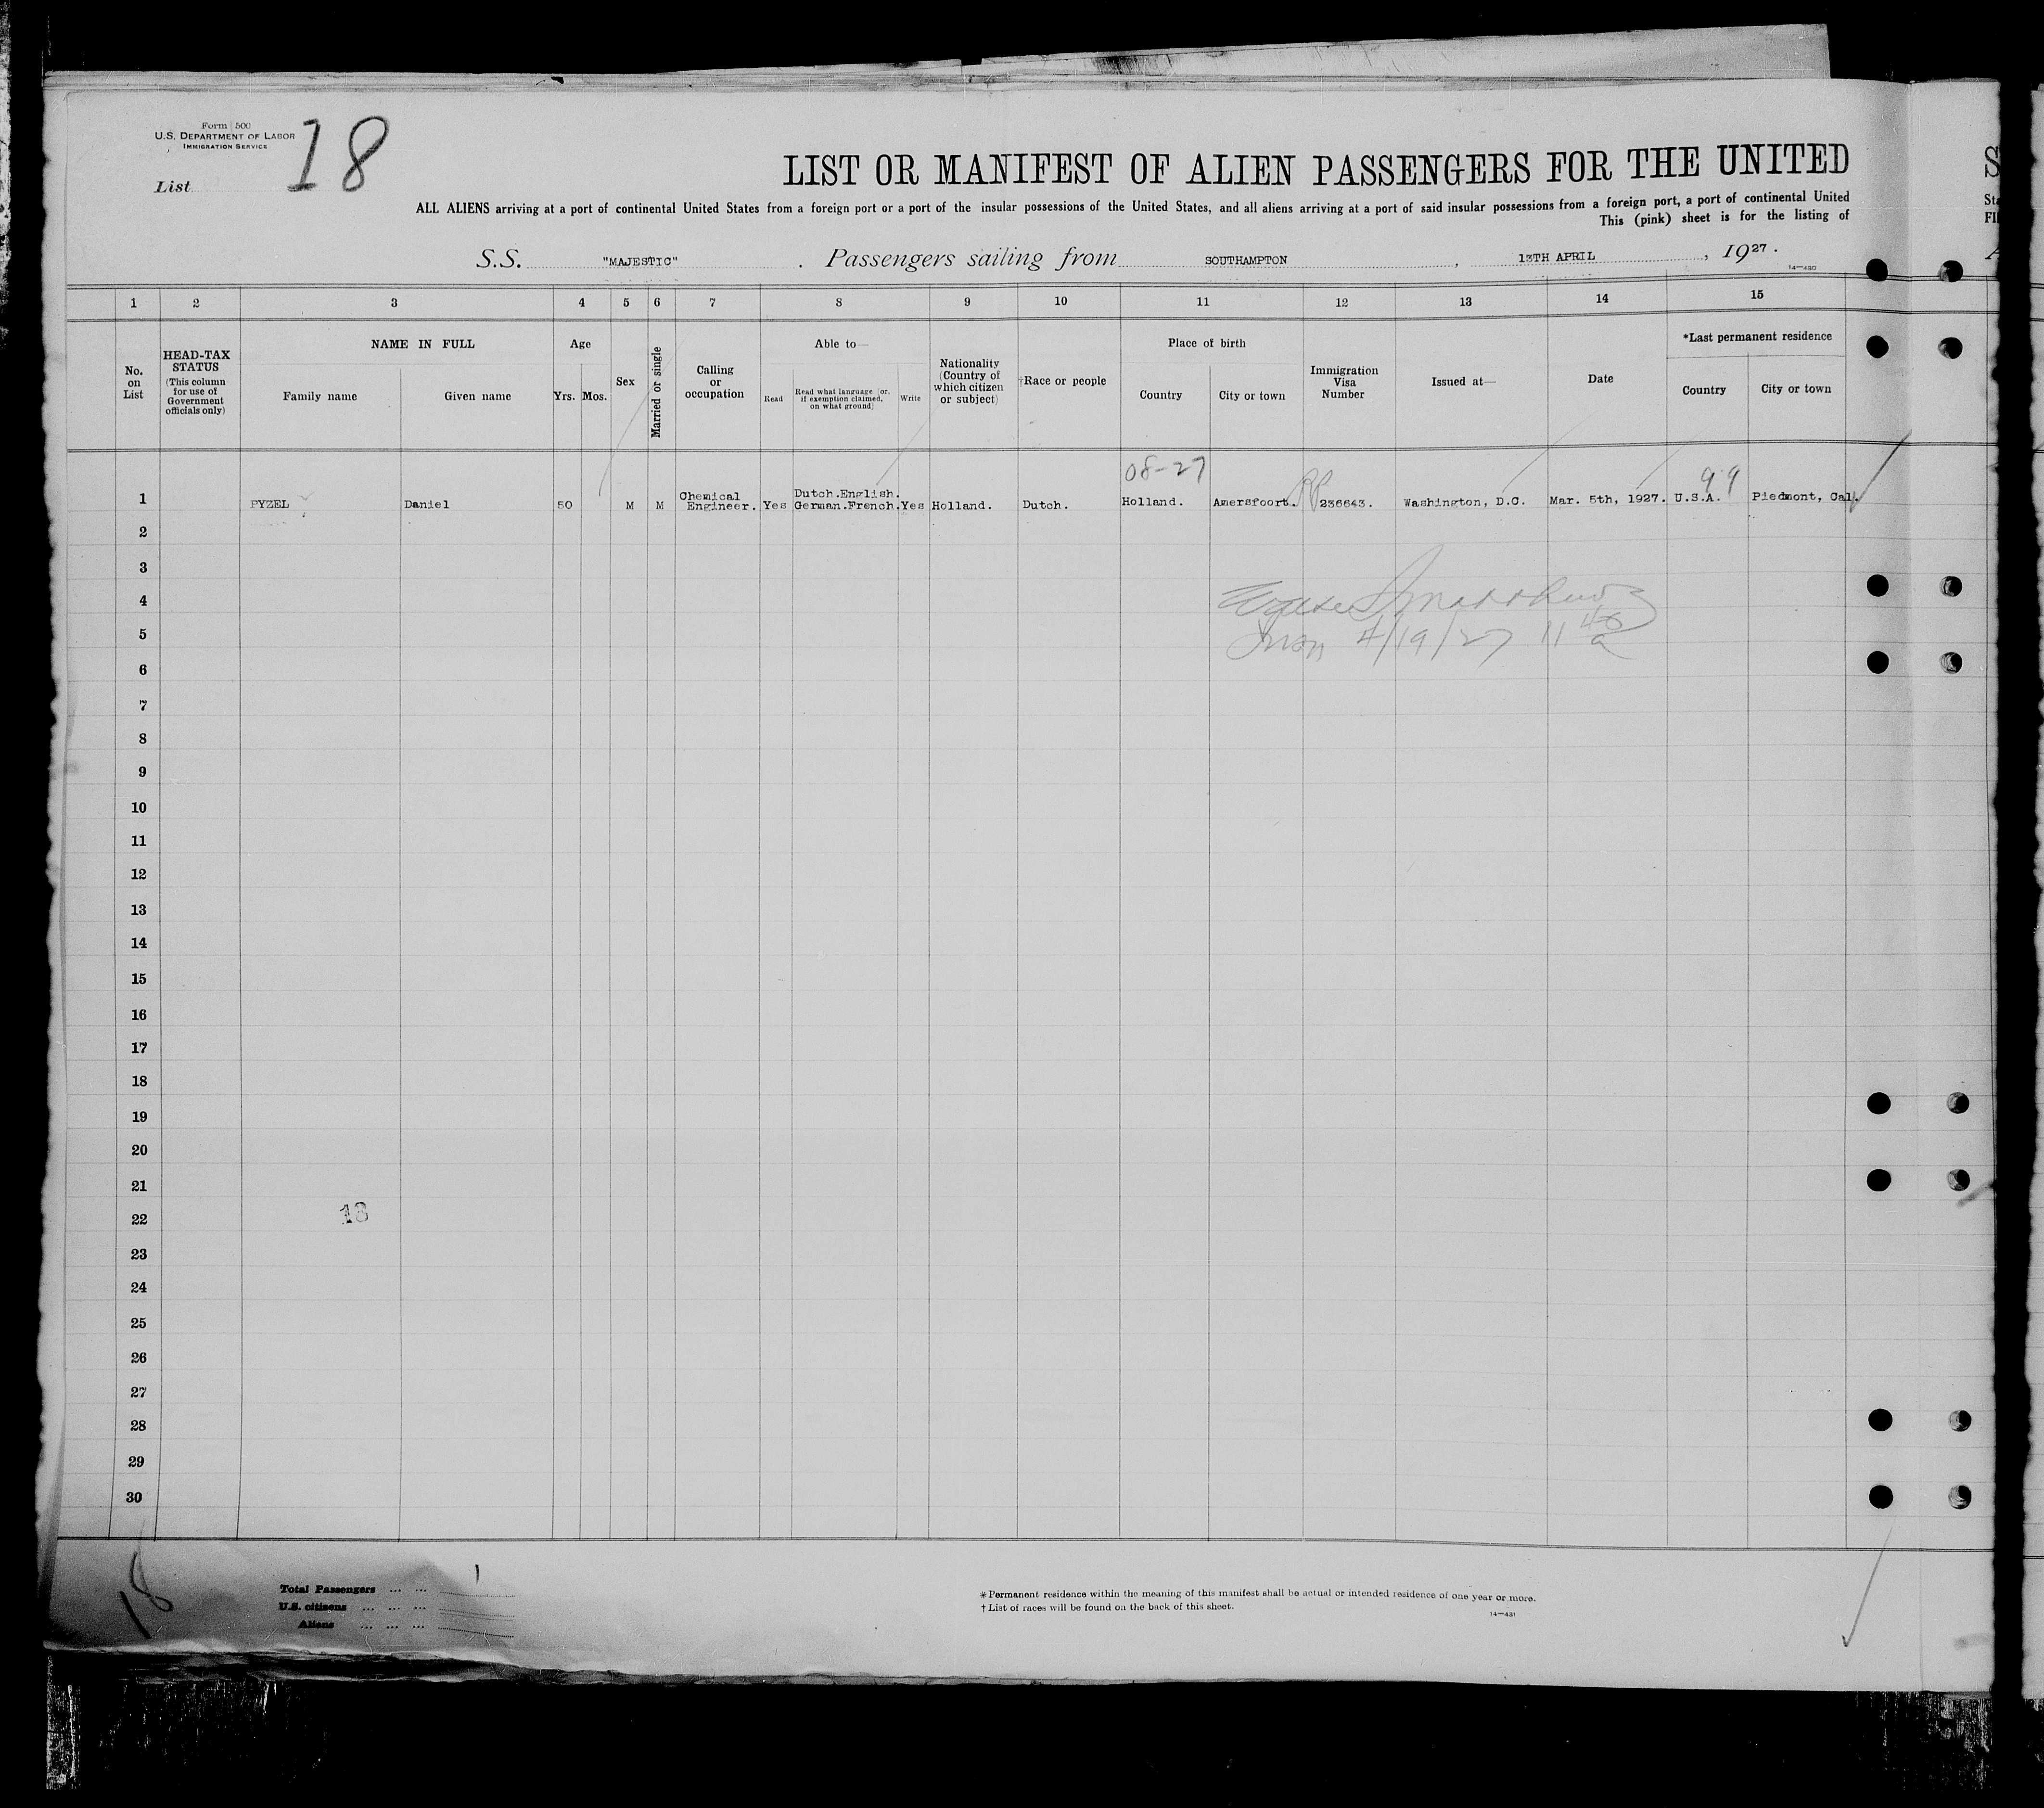 Form 500
U.S. DEPARTMENT OF LABOR
IMMIGRATION SERVICE
List 18
LIST OR MANIFEST OF ALIEN PASSENGERS FOR THE UNITED
ALL ALIENS arriving at a port of continental United States from a foreign port or a port of the insular possessions of the United States, and all aliens arriving at a port of said insular possessions from a foreign port, a port of continental United
This (pink) sheet is for the listing of
S.S. "MAJESTIC". Passengers sailing from SOUTHAMPTON, 13TH APRIL, 1927.
14—430
1 2 3 4 5 6 7 8 9 10 11 12 13 14 15
No. on List
HEAD-TAX STATUS
(This column for use of Government officials only)
NAME IN FULL
Family name
Given name
Age
Yrs. Mos.
Sex
Married or single
Calling or occupation
Able to—
Read
Read what language (or, if exemption claimed, on what ground)
Write
Nationality (Country of which citizen or subject)
†Race or people
Place of birth
Country
City or town
Immigration Visa Number
Issued at—
Date
*Last permanent residence
Country
City or town
08-27
99
1 PYZEL Daniel 50 M M Chemical Engineer. Yes Dutch.English. German.French. Yes Holland. Dutch. Holland. Amersfoort. RP 236643. Washington, D.C. Mar. 5th, 1927. U.S.A. Piedmont, Cal.
2
3
4
5
4/19/27 11 40 a
6
7
8
9
10
11
12
13
14
15
16
17
18
19
20
21
22
18
23
24
25
26
27
28
29
30
18
Total Passengers ... ... 1
U.S. citizens ... ... ...
Aliens ... ... ...
*Permanent residence within the meaning of this manifest shall be actual or intended residence of one year or more.
†List of races will be found on the back of this sheet.
14—431